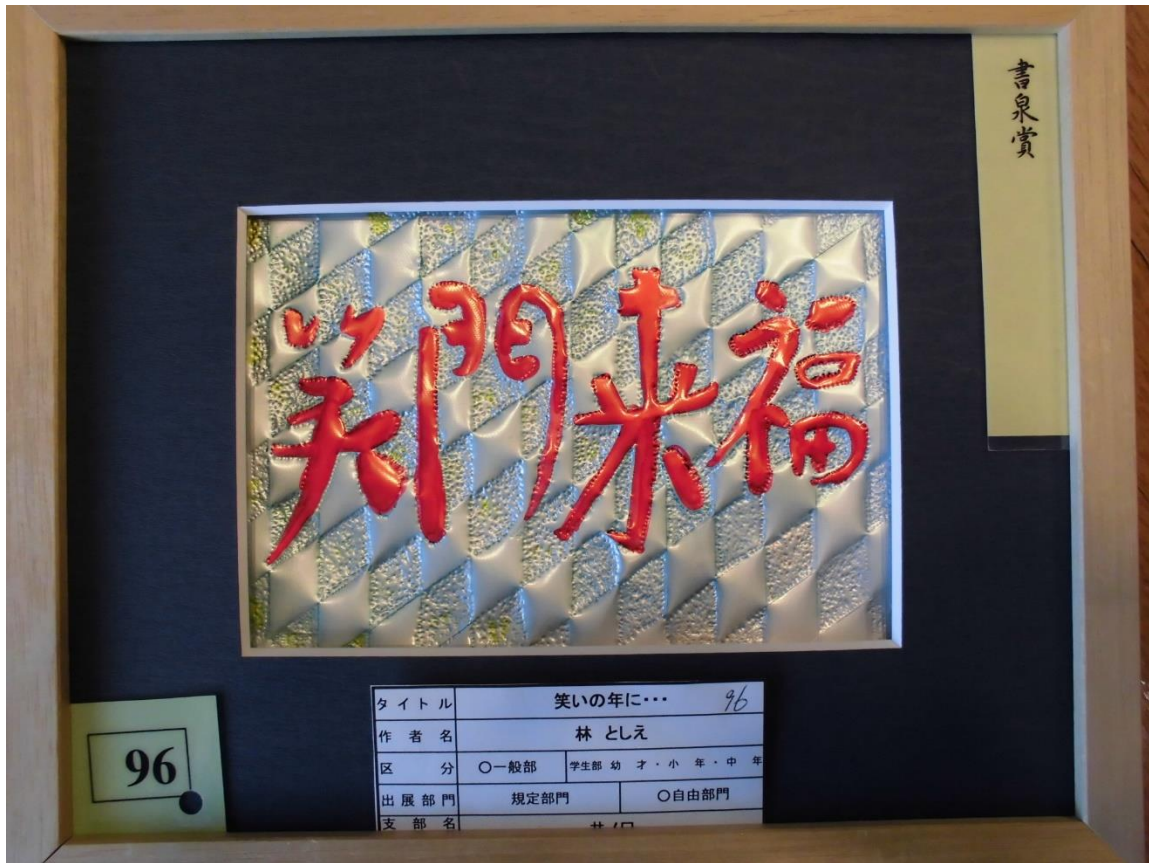 書泉賞
笑門来福
タイトル 笑いの年に・・・ 96
作者名 林 としえ
区分 〇一般部 学生部 幼 才・小 年・中 年
出展部門 規定部門 〇自由部門
支部名
96